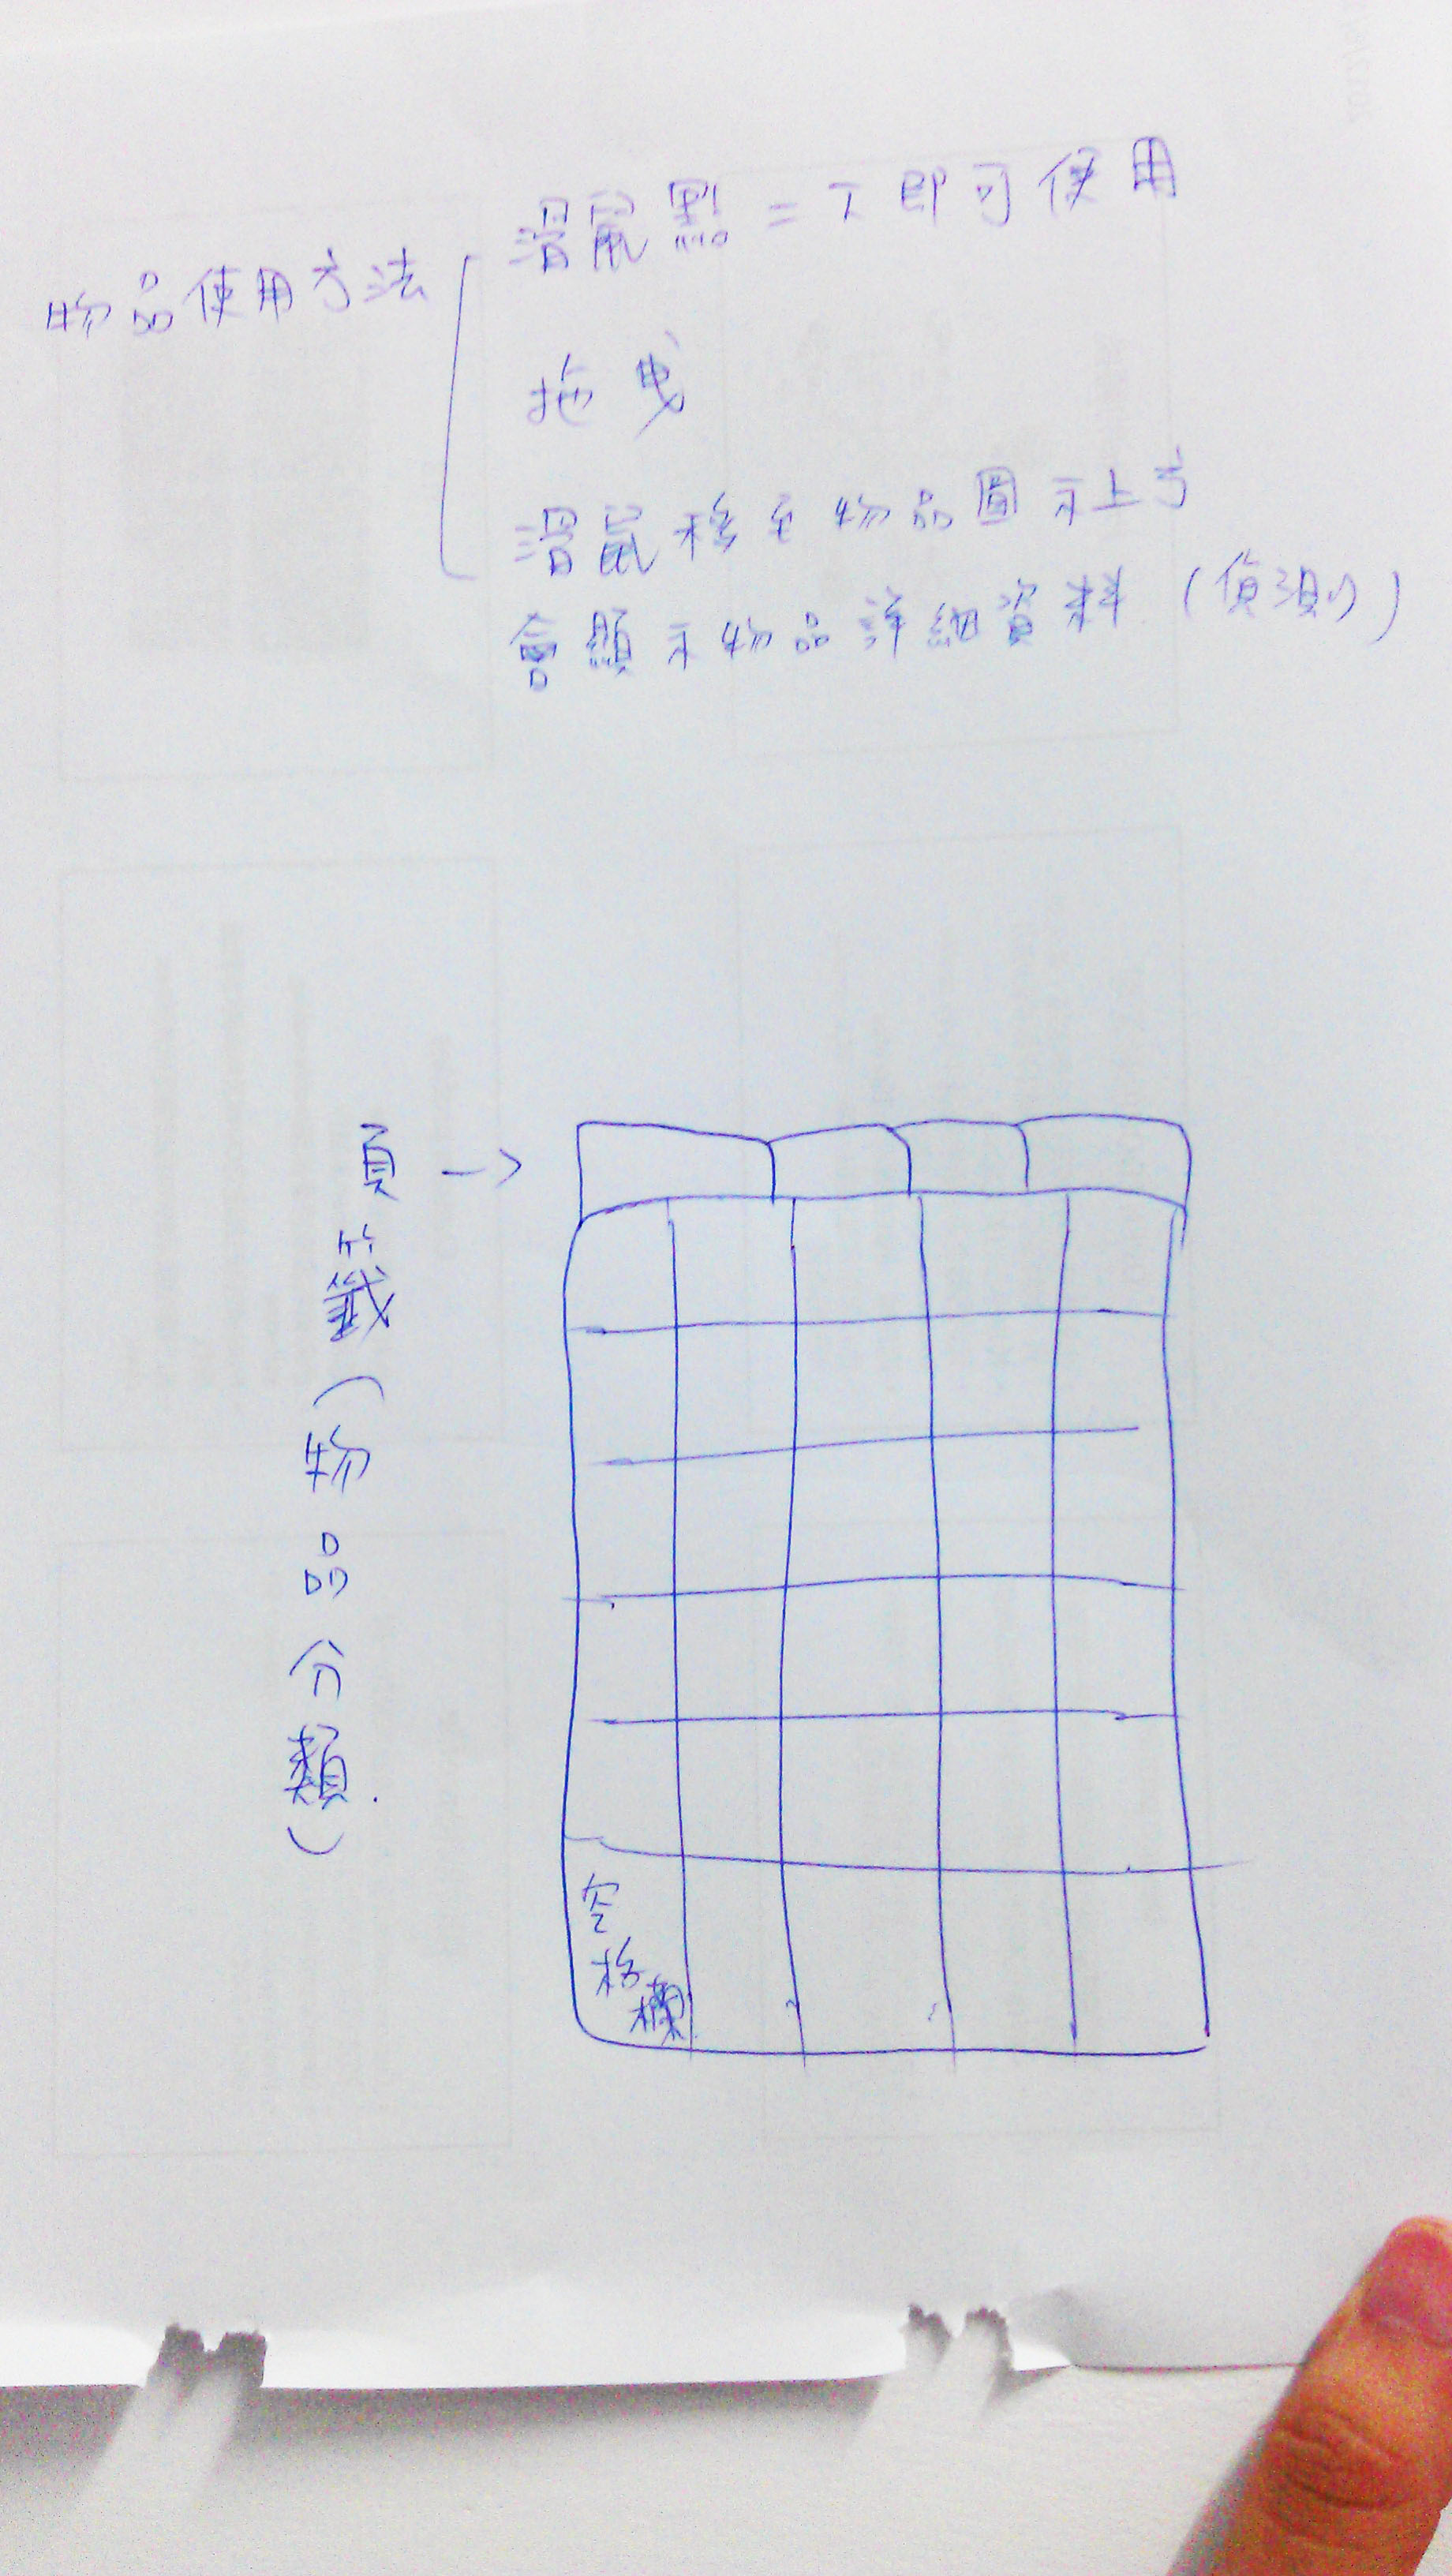 物品使用方法
滑鼠點二下即可使用
拖曳
滑鼠移至物品圖示上方
會顯示物品詳細資料(偵測)
頁籤(物品分類.)
空格欄